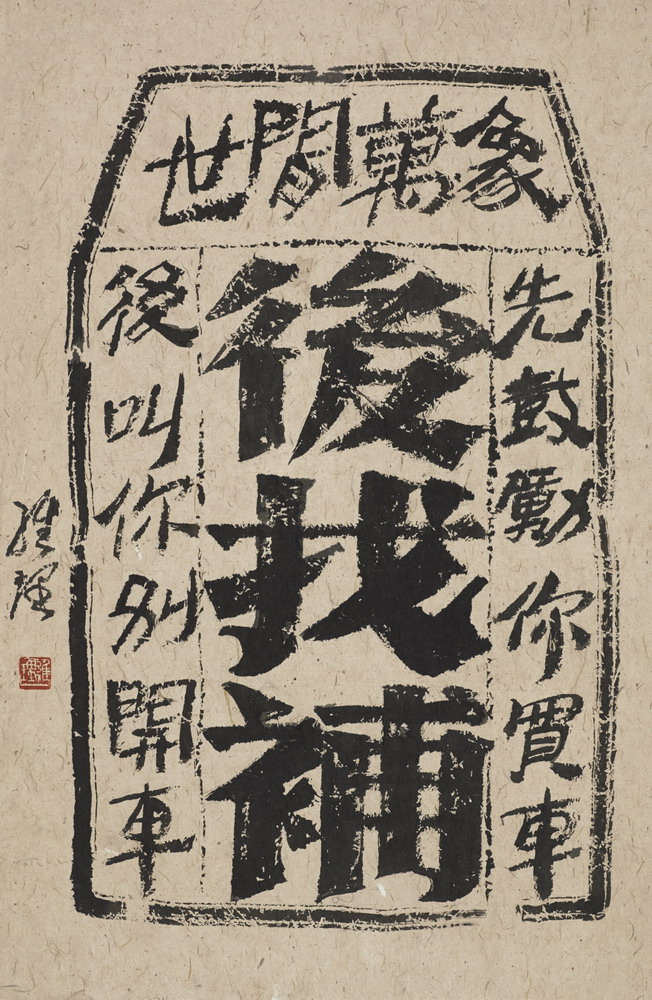 世間萬象
先鼓勵你買車
後找補
後叫你別開車